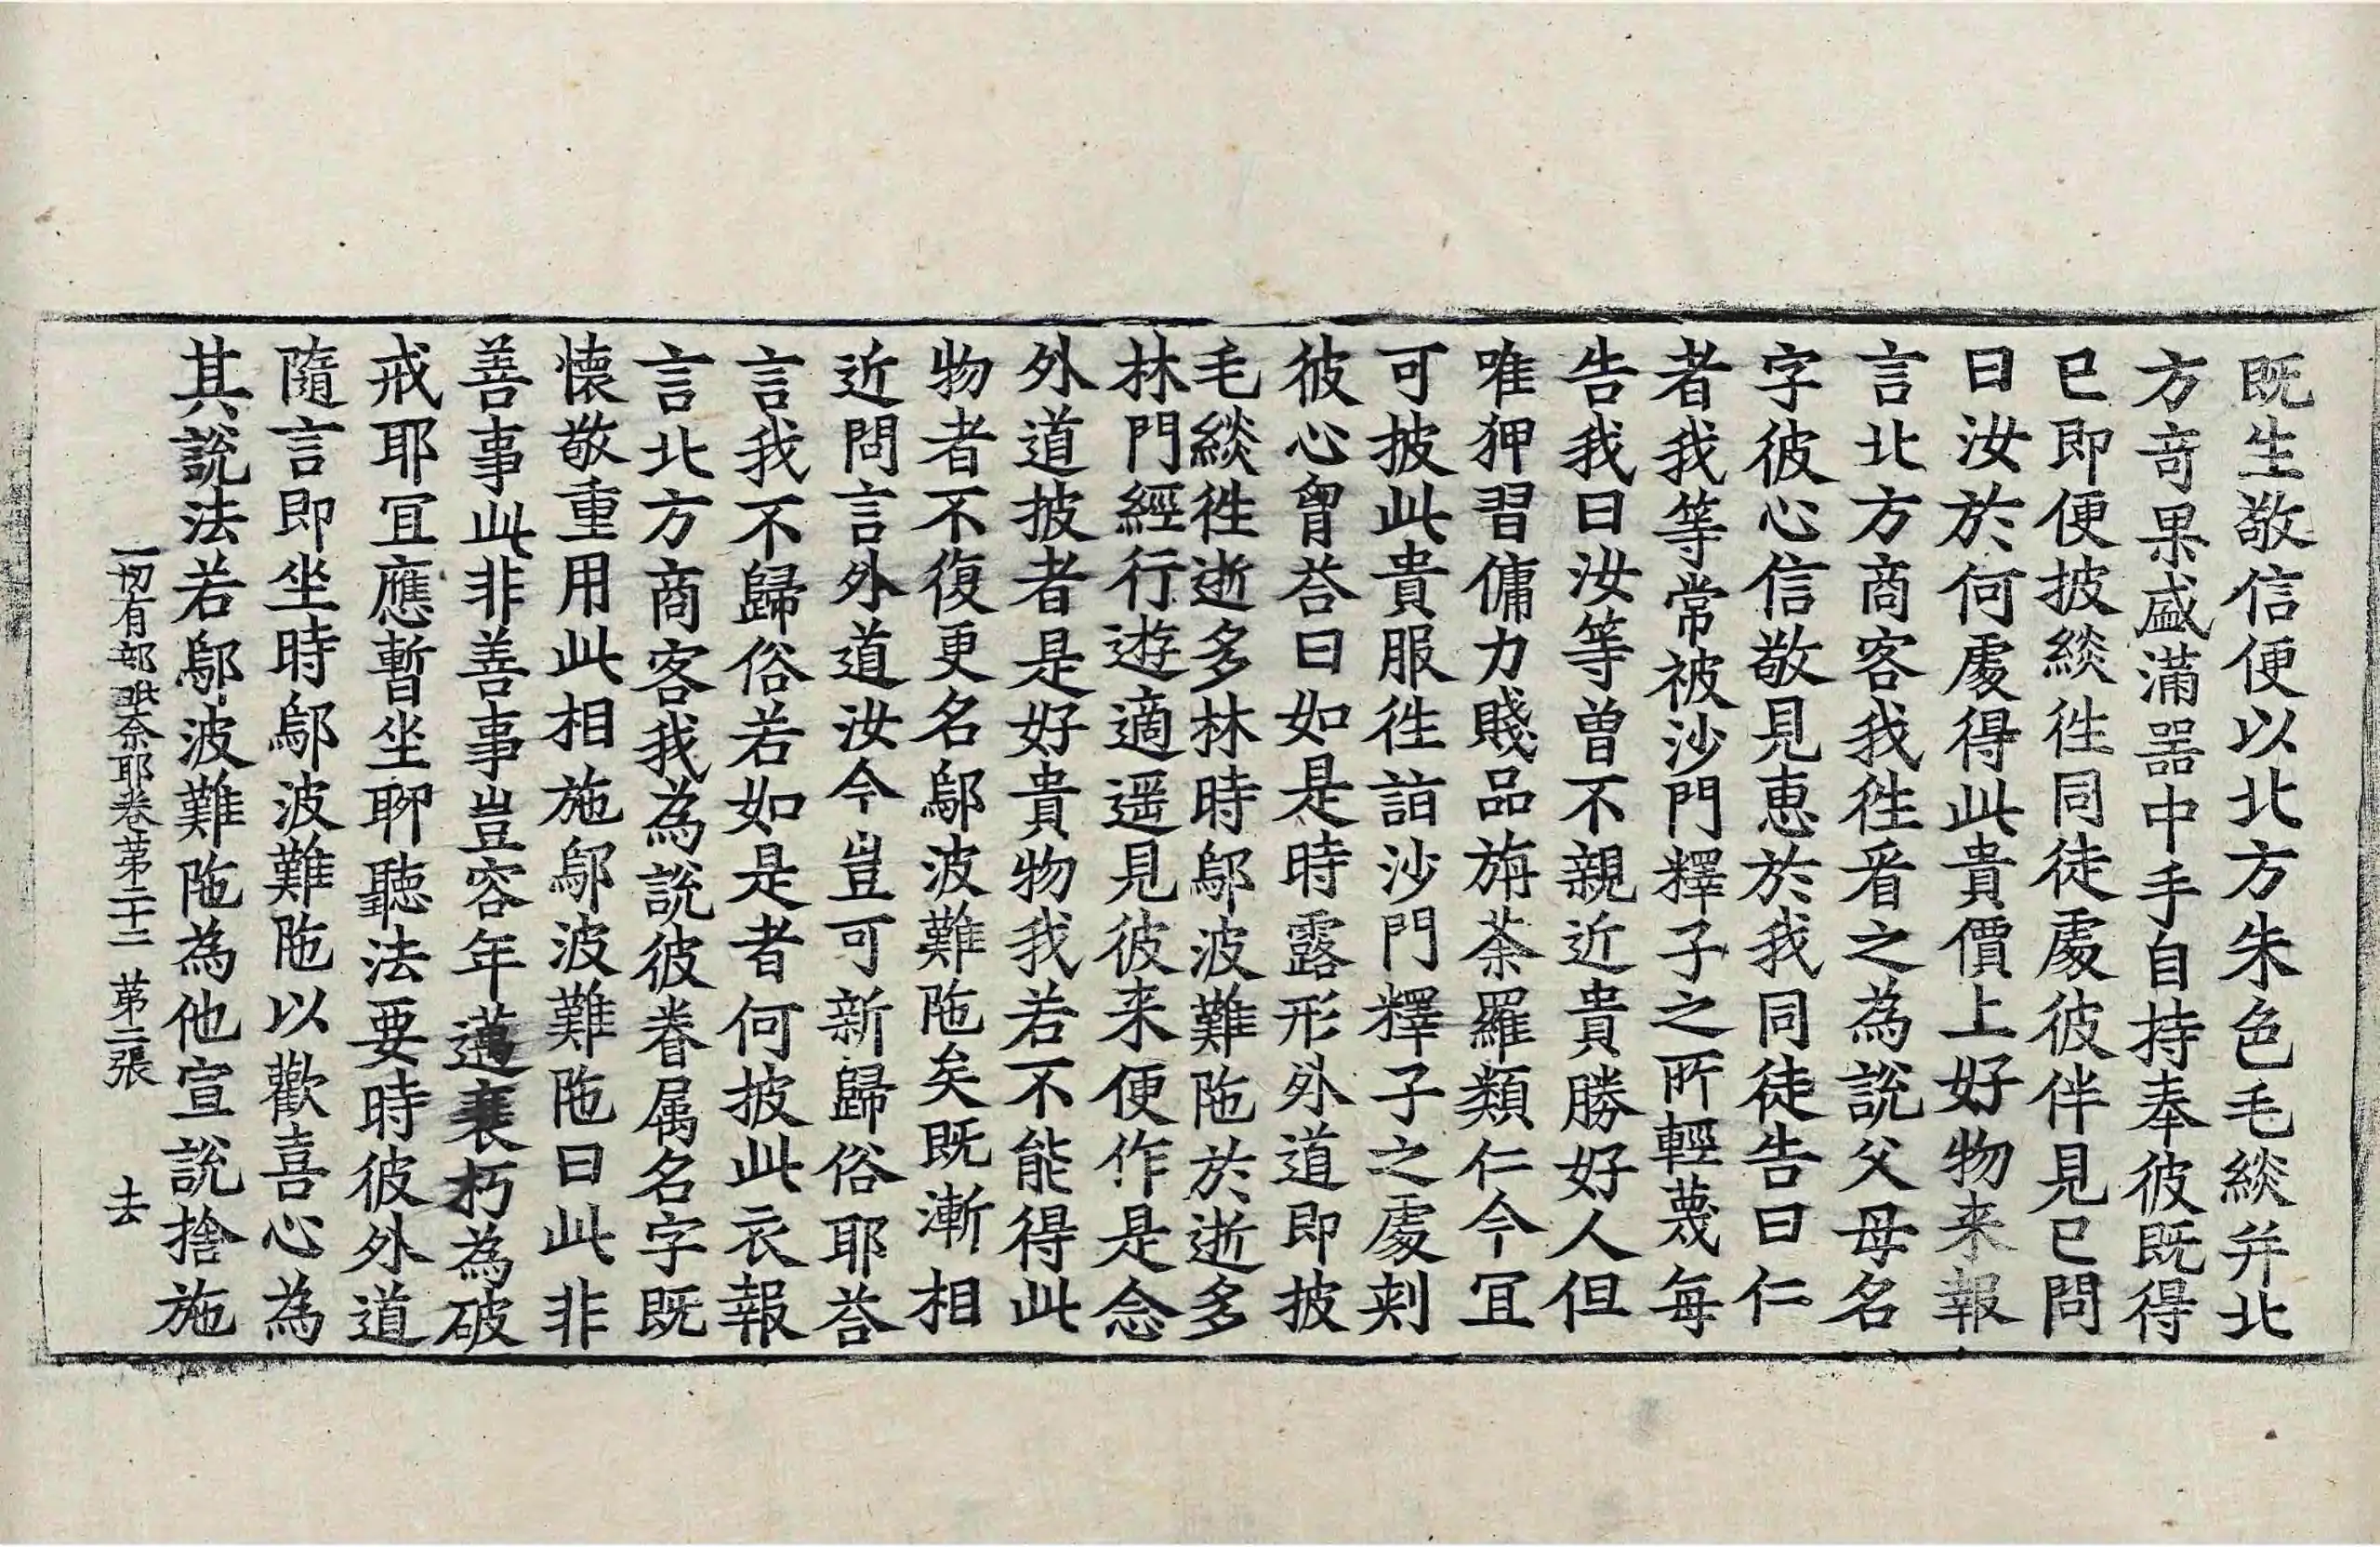 既生敬信便以北方朱色毛緂并北
方竒果盛滿噐中手自持奉彼既得
已即便披緂徃同徒處彼伴見已問
曰汝於何處得此貴價上好物来報
言北方商客我徃看之為說父母名
字彼心信敬見惠於我同徒告曰仁
者我等常被沙門釋子之所輕蔑每
告我曰汝等曾不親近貴勝好人但
唯狎習傭力賤品旃荼羅類仁今冝
可披此貴服徃詣沙門釋子之處刾
彼心胷荅曰如是時露形外道即披
毛緂徃逝多林時鄔波難陁於逝多
林門經行遊適遥見彼来便作是念
外道披者是好貴物我若不能得此
物者不復更名鄔波難陁矣既漸相
近問言外道汝今豈可新歸俗耶荅
言我不歸俗若如是者何披此衣報
言北方商客我為說彼眷属名字既
懐敬重用此相施鄔波難陁曰此非
善事此非善事豈容年邁衰朽為破
戒耶冝應暫坐聊聽法要時彼外道
隨言即坐時鄔波難陁以歡喜心為
其說法若鄔波難陁為他宣說捨施
一切有部毗奈耶卷苐二十二 苐二張 去